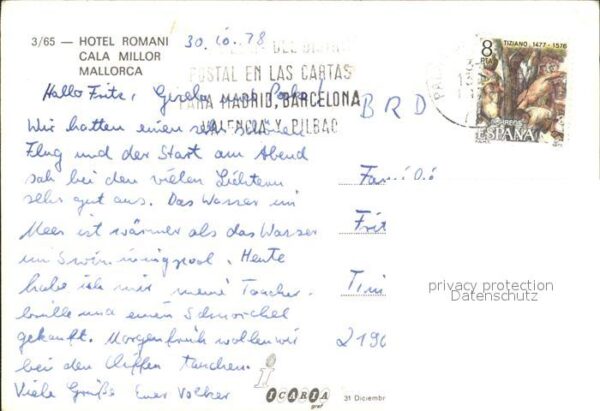 3/65 — HOTEL ROMANI
CALA MILLOR
MALLORCA
30.10.78
DEL DISTRITO
POSTAL EN LAS CARTAS
PARA MADRID, BARCELONA
VALENCIA Y BILBAO
8
PTA
TIZIANO · 1477 - 1576
CORREOS
ESPAÑA
Hallo Fritz, Gisela und
Wir hatten einen sehr
Flug und der Start am Abend
sah bei den vielen Lichtern
sehr gut aus. Das Wasser im
Meer ist wärmer als das Wasser
im Swimmingpool. Heute
habe ich mir meine Taucher-
brille und einen Schnorchel
gekauft. Morgen früh wollen wir
bei den Cliffen tauchen.
Viele Grüße Euer Volker
BRD
Fritz
216
privacy protection
Datenschutz
ICARIA
graf
31 Diciembr